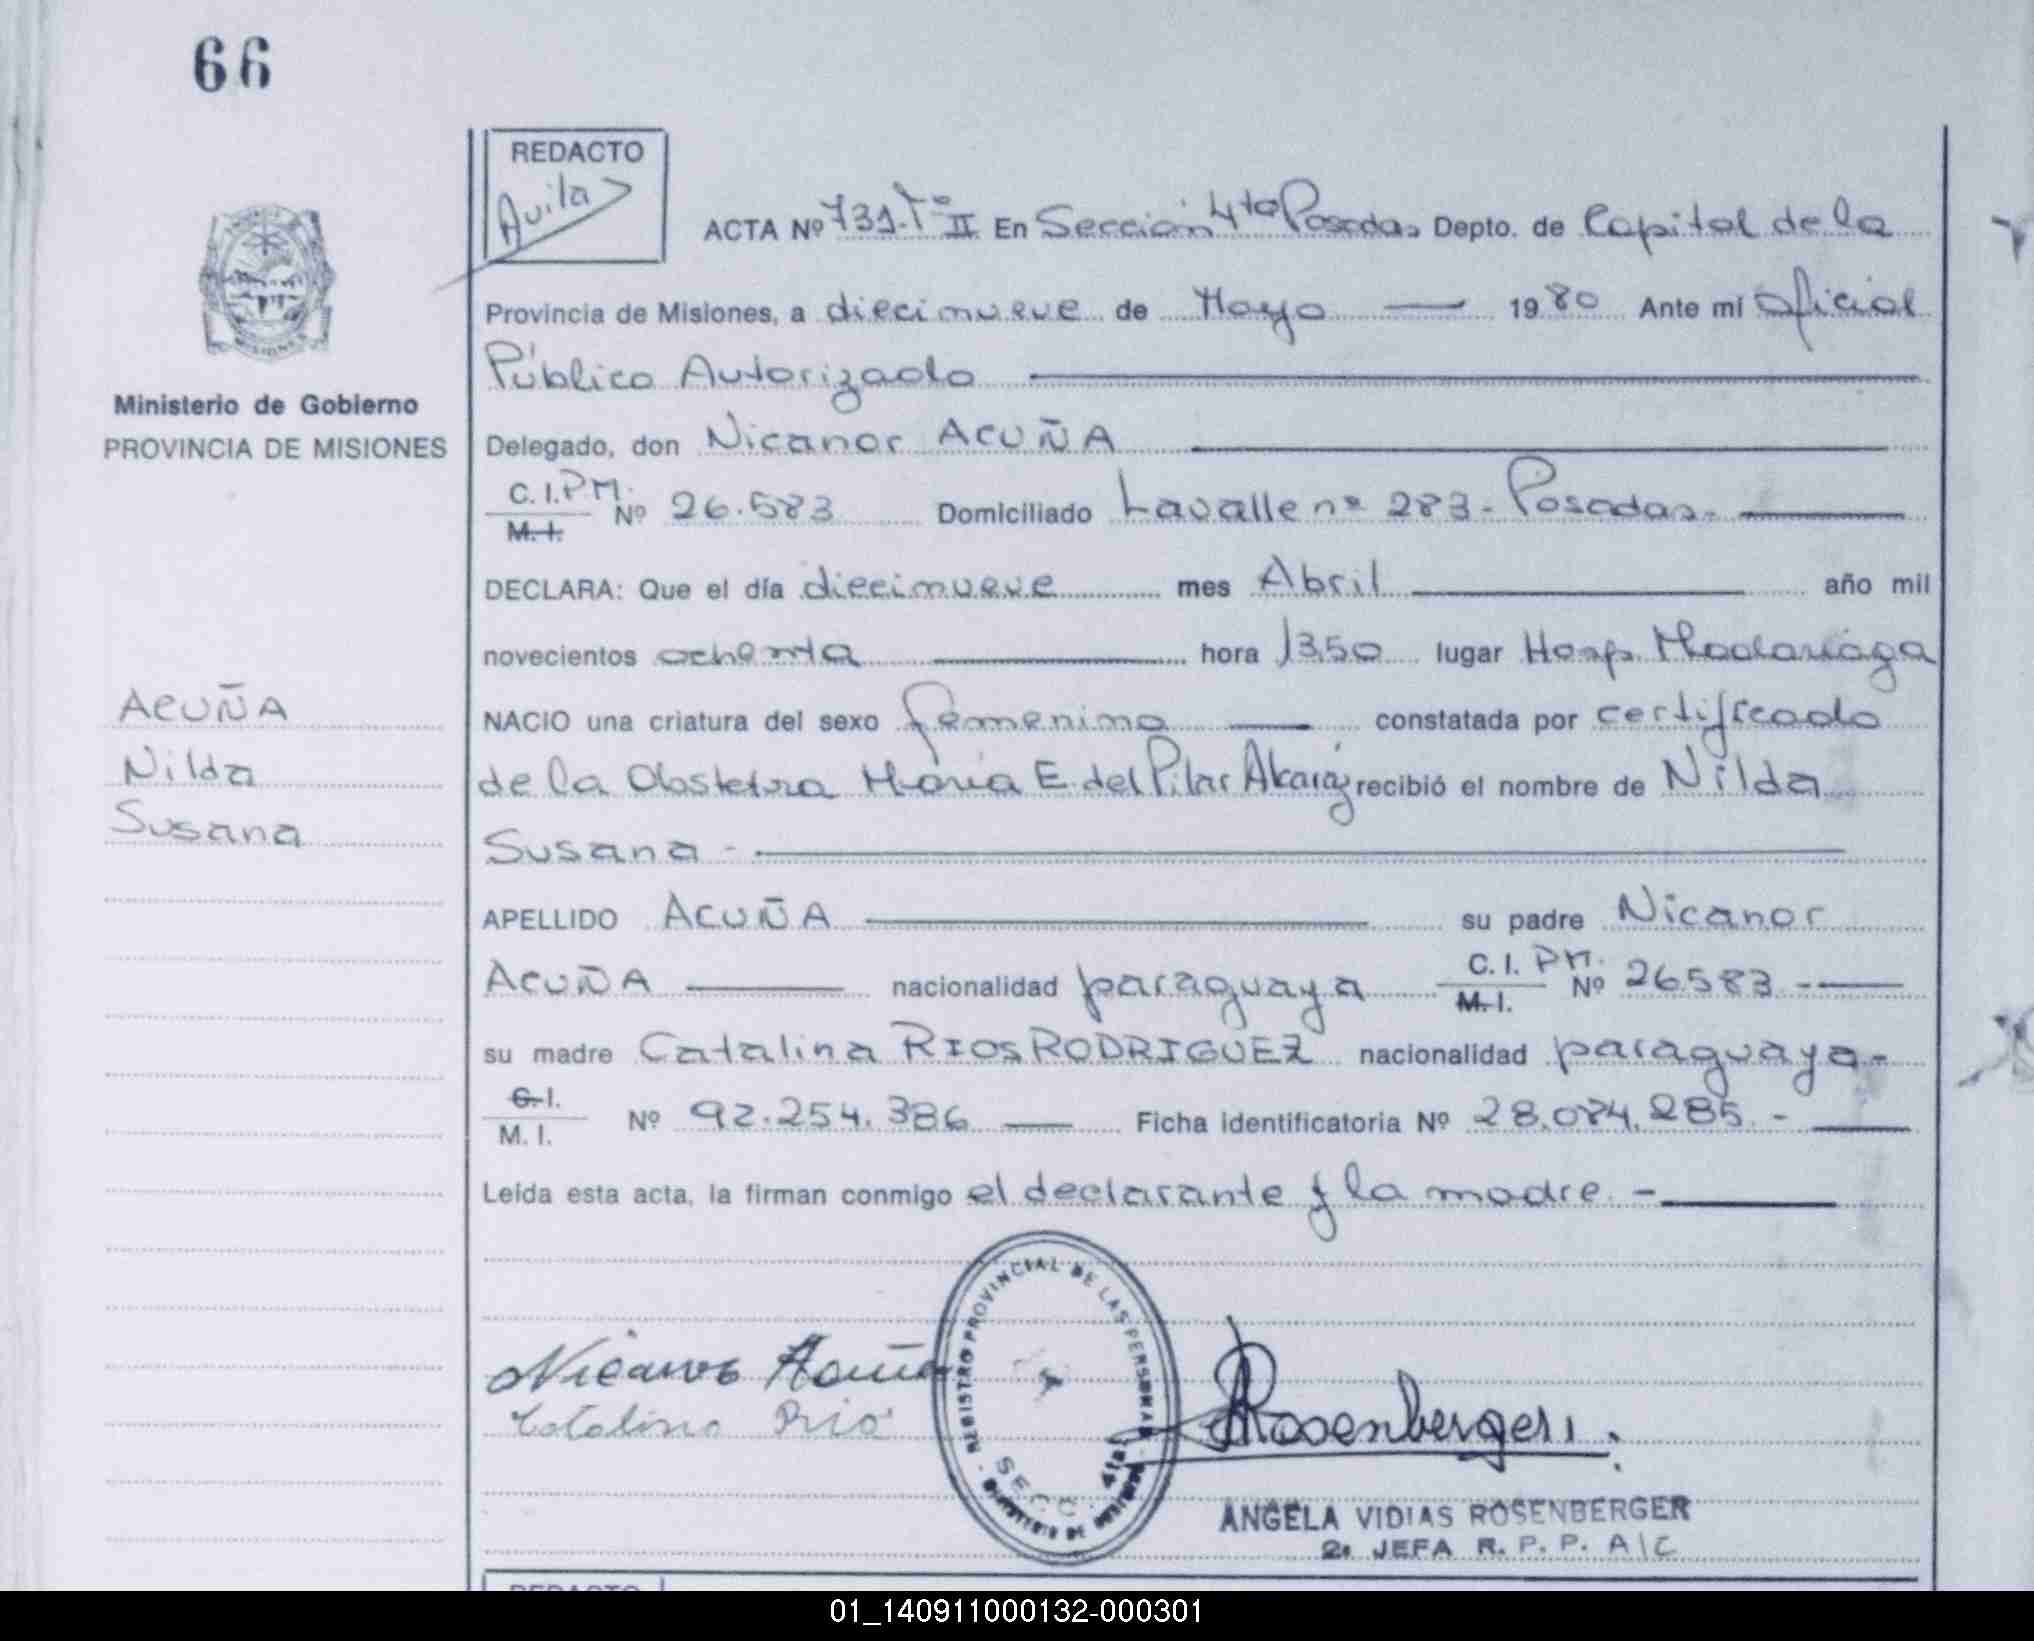 66
REDACTO
Avila
ACTA Nº 731. Tº II En Sección 4ta Posadas Depto. de Capital de la
Provincia de Misiones, a diecinueve de Mayo — 1980 Ante mi Oficial
Público Autorizado
Ministerio de Gobierno
PROVINCIA DE MISIONES
Delegado, don Nicanor ACUÑA
C. I. P.M. Nº 26.583 Domiciliado Lavalle nº 283 - Posadas -
M. I.
DECLARA: Que el día diecinueve mes Abril año mil
novecientos ochenta hora 13,50 lugar Hosp. Madariaga
ACUÑA
Nilda
Susana
NACIO una criatura del sexo femenino constatada por certificado
de la Obstetra María E. del Pilar Alcaráz recibió el nombre de Nilda
Susana -
APELLIDO ACUÑA su padre Nicanor
ACUÑA nacionalidad paraguaya C. I. P.M. Nº 26583 -
M. I.
su madre Catalina RIOS RODRIGUEZ nacionalidad paraguaya -
C. I.
M. I. Nº 92.254.386 Ficha identificatoria Nº 28.084.285 -
Leída esta acta, la firman conmigo el declarante y la madre. -
REGISTRO PROVINCIAL DE LAS PERSONAS
SECC. 4ta.
MINISTERIO DE GOBIERNO
Nicanor Acuña
Catalina Rio
Rosenberger
ANGELA VIDIAS ROSENBERGER
2a JEFA R. P. P. A/C
REDACTO
01_140911000132-000301